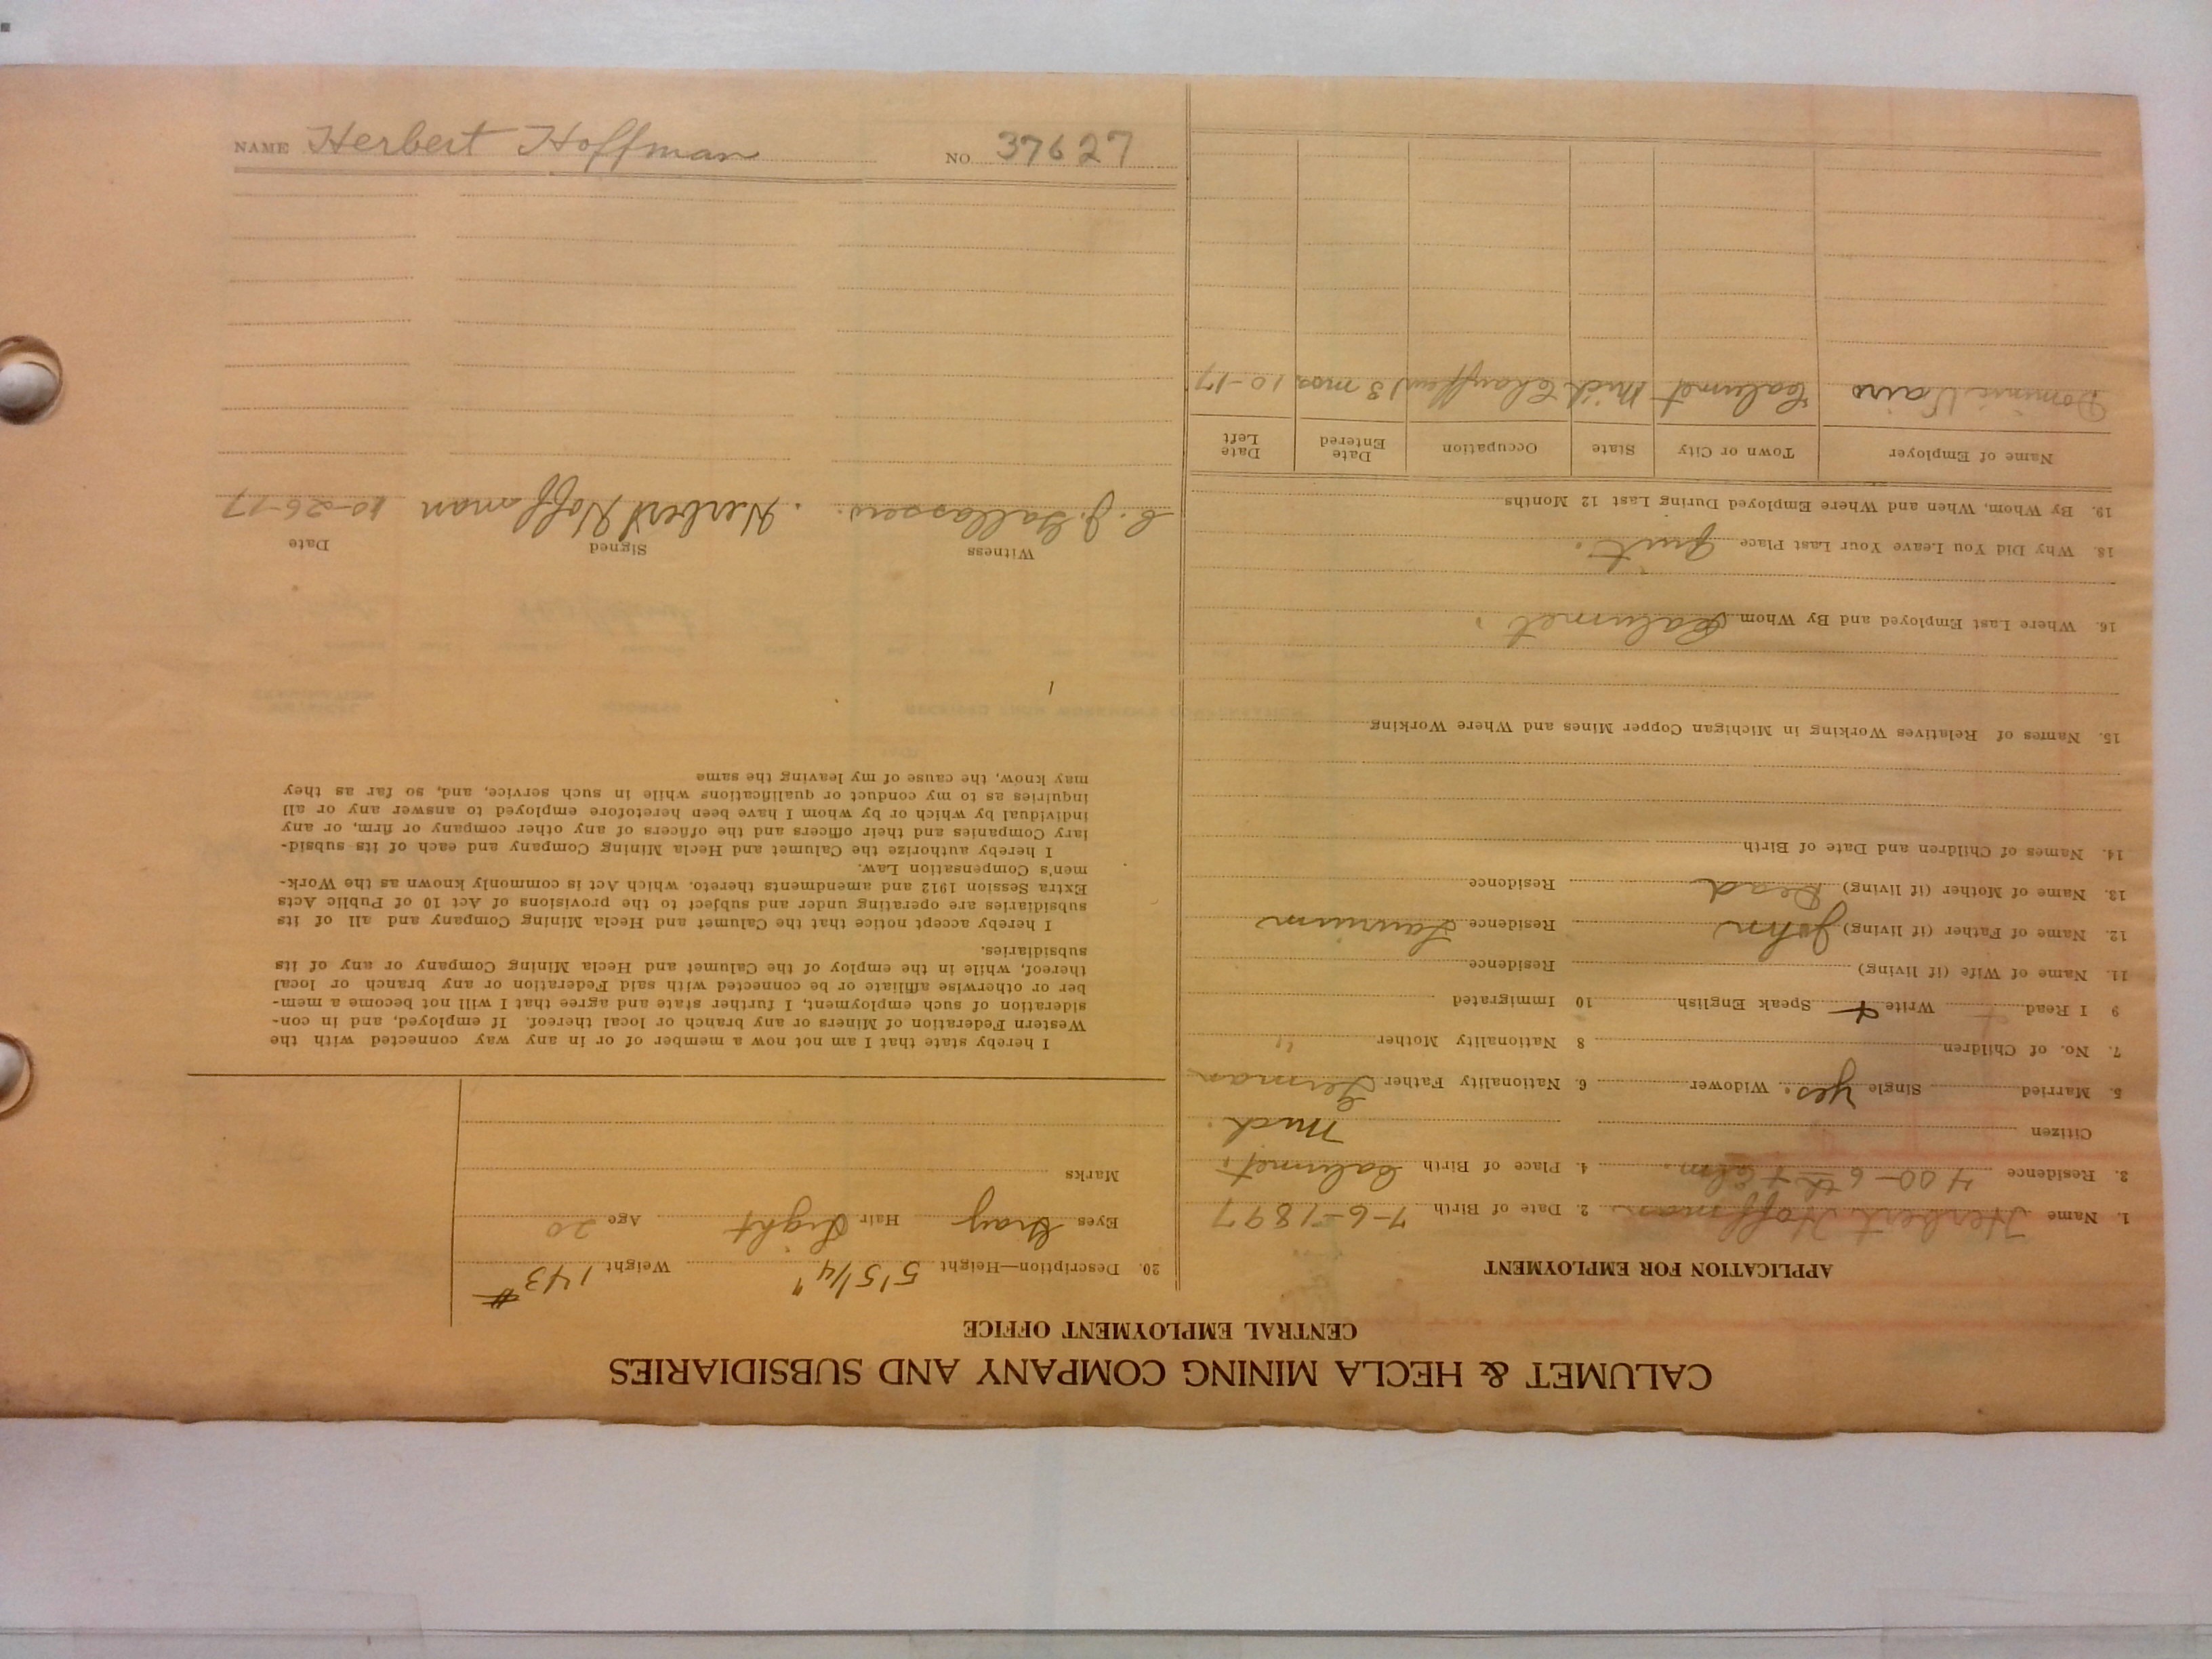 CALUMET & HECLA MINING COMPANY AND SUBSIDIARIES
CENTRAL EMPLOYMENT OFFICE
APPLICATION FOR EMPLOYMENT
1. Name Herbert Hoffman 2. Date of Birth 7-6-1897
3. Residence 400-6th & Elm. 4. Place of Birth Calumet,
Citizen Mich.
5. Married Single Yes. Widower 6. Nationality Father German
7. No. of Children 8 Nationality Mother "
9 I Read Write + Speak English 10 Immigrated
11. Name of Wife (if living) Residence
12. Name of Father (if living) John Residence Laurium
13. Name of Mother (if living) Dead Residence
14. Names of Children and Date of Birth
15. Names of Relatives Working in Michigan Copper Mines and Where Working
16. Where Last Employed and By Whom Calumet.
18. Why Did You Leave Your Last Place Quit.
19. By Whom, When and Where Employed During Last 12 Months
Name of Employer Town or City State Occupation Date Entered Date Left
Dominic Vairo Calumet Mich Chauffeur 3 mos. 10-17
20. Description—Height 5'5 1/4" Weight 143#
Eyes Gray Hair Light Age 20
Marks
I hereby state that I am not now a member of or in any way connected with the
Western Federation of Miners or any branch or local thereof. If employed, and in con-
sideration of such employment, I further state and agree that I will not become a mem-
ber or otherwise affiliate or be connected with said Federation or any branch or local
thereof, while in the employ of the Calumet and Hecla Mining Company or any of its
subsidiaries.
I hereby accept notice that the Calumet and Hecla Mining Company and all of its
subsidiaries are operating under and subject to the provisions of Act 10 of Public Acts
Extra Session 1912 and amendments thereto. which Act is commonly known as the Work-
men's Compensation Law.
I hereby authorize the Calumet and Hecla Mining Company and each of its subsid-
iary Companies and their officers and the officers of any other company or firm, or any
individual by which or by whom I have been heretofore employed to answer any or all
inquiries as to my conduct or qualifications while in such service, and, so far as they
may know, the cause of my leaving the same
Witness Signed Date
C. J. Herbert Hoffman 10-26-17
NAME Herbert Hoffman NO 37627